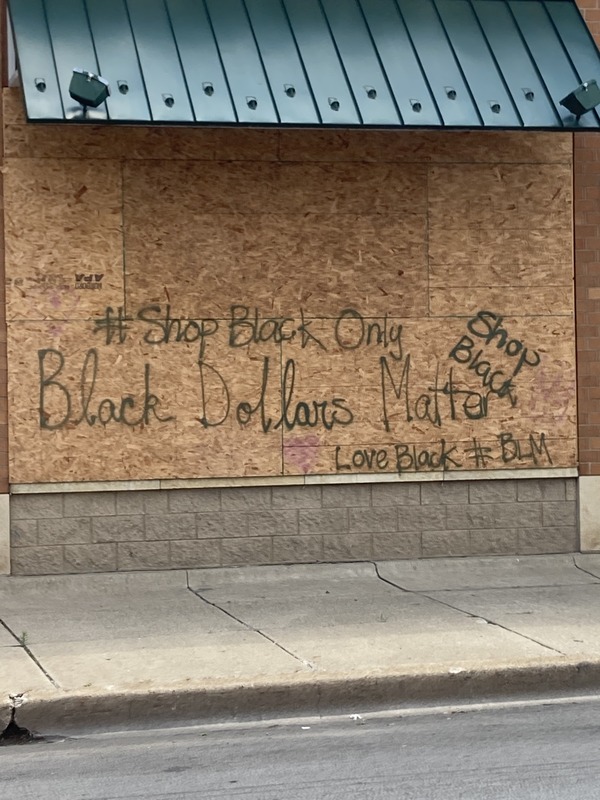 APA
# Shop Black Only
Shop
Black
Black Dollars Matter
Love Black # BLM